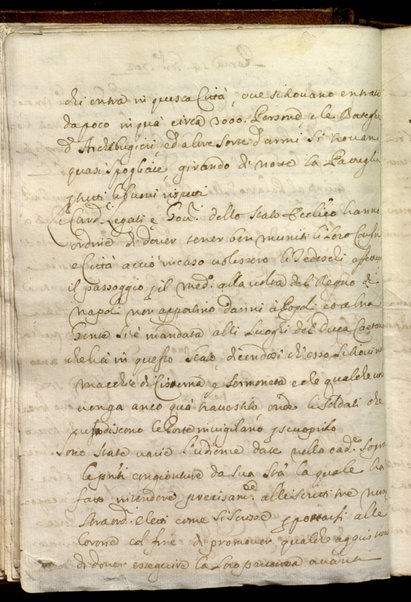 chi entra in questa Città, oue si trouano entrati
da poco in quà circa 7000. Persone, e le Botteghe
d'Archibugieri, ed altre Sorte d'armi si trouano
quasi spogliate girando di notte la Pattuglia
p tutti li buoni rispetti
Card.li Legati e Gou.ri dello Stato Eccl.ico hanno
ordine di douer tener ben muniti li loro Castelli
e Città acciò in caso uolessero li Tedeschi
il passaggio p il med.o alla uolta del Regno di
Napoli non apportino danni à Popoli, ed alcuna
gente si è mandata alli Luoghi del Duca Caetano
che hà in questo Stato, dicendosi ch'esso si troui in
macchie di Cisterna, e Sermoneta, e che qualche uolta
uenga anco quà trauestito, onde li Soldati che
custodiscono le Porte inuigilano p scuoprirlo
Sono state uarie l'udienze date nella cad.e Sopra
le pnti congionture da Sua Stà la quale hà
fatto intendere precisam.te alli scritti tre Nun
Straord. eletti come si scrisse p portarsi alle
Corone col fine di promouer qualche aggiustam
di douer eseguire la loro partenza auanti